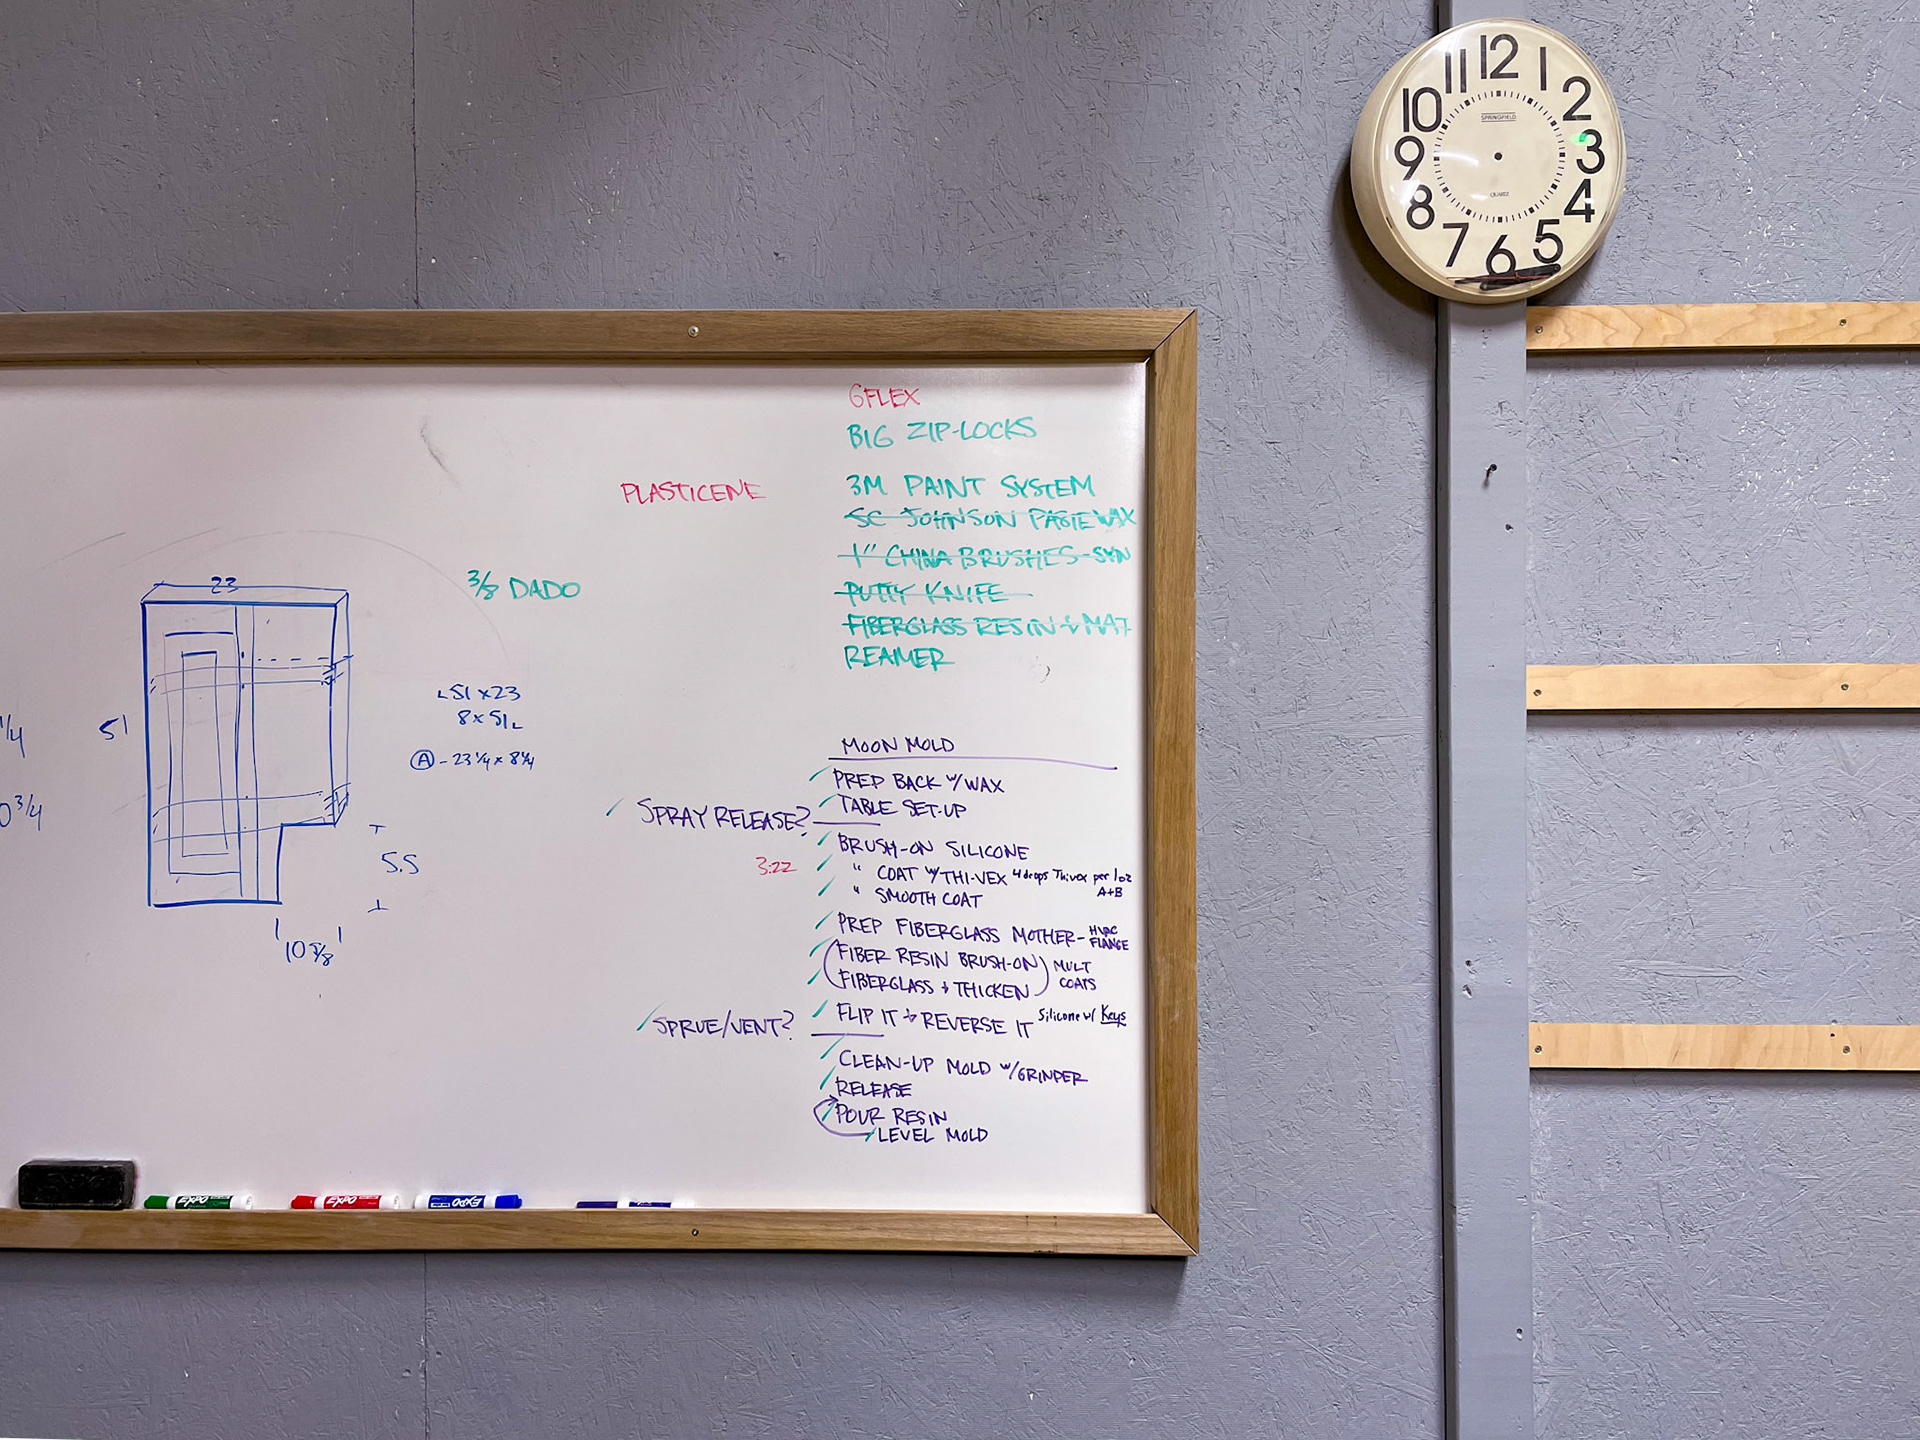 11 12 1
10 2
9 3
8 4
7 6 5
SPRINGFIELD
QUARTZ
GFLEX
BIG ZIP-LOCKS
PLASTICENE
3M PAINT SYSTEM
SC JOHNSON PASTE WAX
1" CHINA BRUSHES-SYN
PUTTY KNIFE
FIBERGLASS RESIN + MAT
REAMER
3/8 DADO
23
51
51 x 23
8 x 51
A - 23 1/4 x 8 1/4
1/4
0 3/4
5.5
10 7/8
MOON MOLD
PREP BACK w/ WAX
TABLE SET-UP
SPRAY RELEASE?
BRUSH-ON SILICONE
3:22
" COAT w/ THI-VEX 4 drops Thivex per 1 oz
A+B
" SMOOTH COAT
PREP FIBERGLASS MOTHER - HVAC
FLANGE
(FIBER RESIN BRUSH-ON) MULT
FIBERGLASS + THICKEN COATS
FLIP IT + REVERSE IT Silicone w/ Keys
SPRUE/VENT?
CLEAN-UP MOLD w/ GRINDER
RELEASE
POUR RESIN
LEVEL MOLD
EXPO
EXPO
EXPO